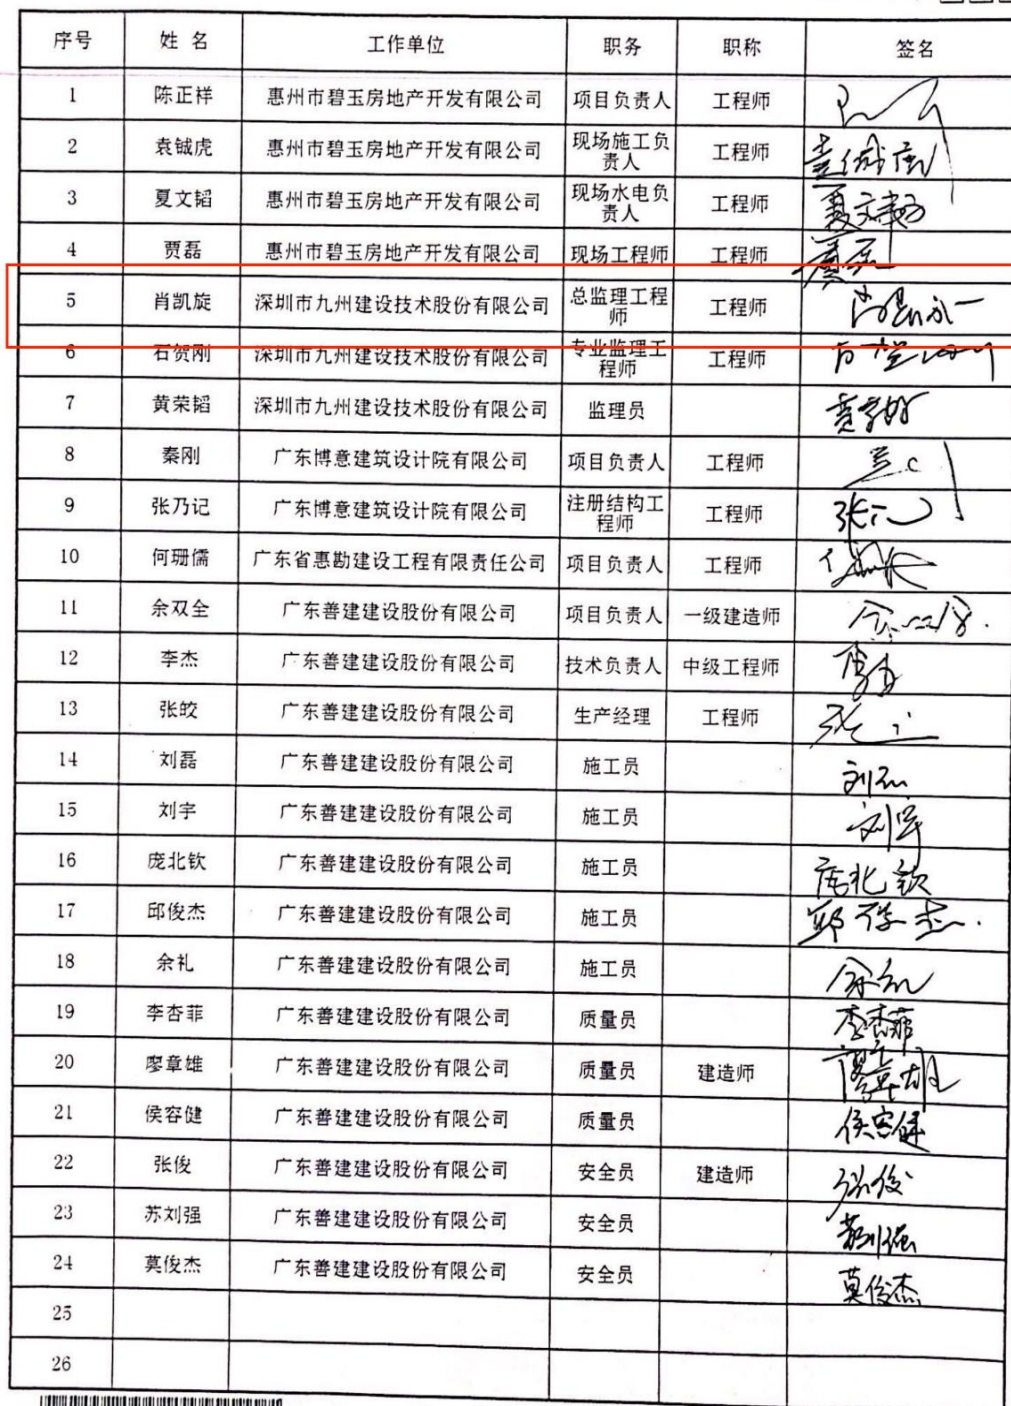 序号 姓名 工作单位 职务 职称 签名
1 陈正祥 惠州市碧玉房地产开发有限公司 项目负责人 工程师
2 袁铖虎 惠州市碧玉房地产开发有限公司 现场施工负责人 工程师
3 夏文韬 惠州市碧玉房地产开发有限公司 现场水电负责人 工程师 夏文韬
4 贾磊 惠州市碧玉房地产开发有限公司 现场工程师 工程师
5 肖凯旋 深圳市九州建设技术股份有限公司 总监理工程师 工程师
6 石贺刚 深圳市九州建设技术股份有限公司 专业监理工程师 工程师
7 黄荣韬 深圳市九州建设技术股份有限公司 监理员
8 秦刚 广东博意建筑设计院有限公司 项目负责人 工程师
9 张乃记 广东博意建筑设计院有限公司 注册结构工程师 工程师
10 何珊儒 广东省惠勘建设工程有限责任公司 项目负责人 工程师
11 余双全 广东善建建设股份有限公司 项目负责人 一级建造师
12 李杰 广东善建建设股份有限公司 技术负责人 中级工程师
13 张皎 广东善建建设股份有限公司 生产经理 工程师
14 刘磊 广东善建建设股份有限公司 施工员 刘磊
15 刘宇 广东善建建设股份有限公司 施工员 刘宇
16 庞北钦 广东善建建设股份有限公司 施工员 庞北钦
17 邱俊杰 广东善建建设股份有限公司 施工员 邱俊杰
18 余礼 广东善建建设股份有限公司 施工员 余礼
19 李杏菲 广东善建建设股份有限公司 质量员 李杏菲
20 廖章雄 广东善建建设股份有限公司 质量员 建造师 廖章雄
21 侯容健 广东善建建设股份有限公司 质量员 侯容健
22 张俊 广东善建建设股份有限公司 安全员 建造师 张俊
23 苏刘强 广东善建建设股份有限公司 安全员 苏刘强
24 莫俊杰 广东善建建设股份有限公司 安全员 莫俊杰
25
26